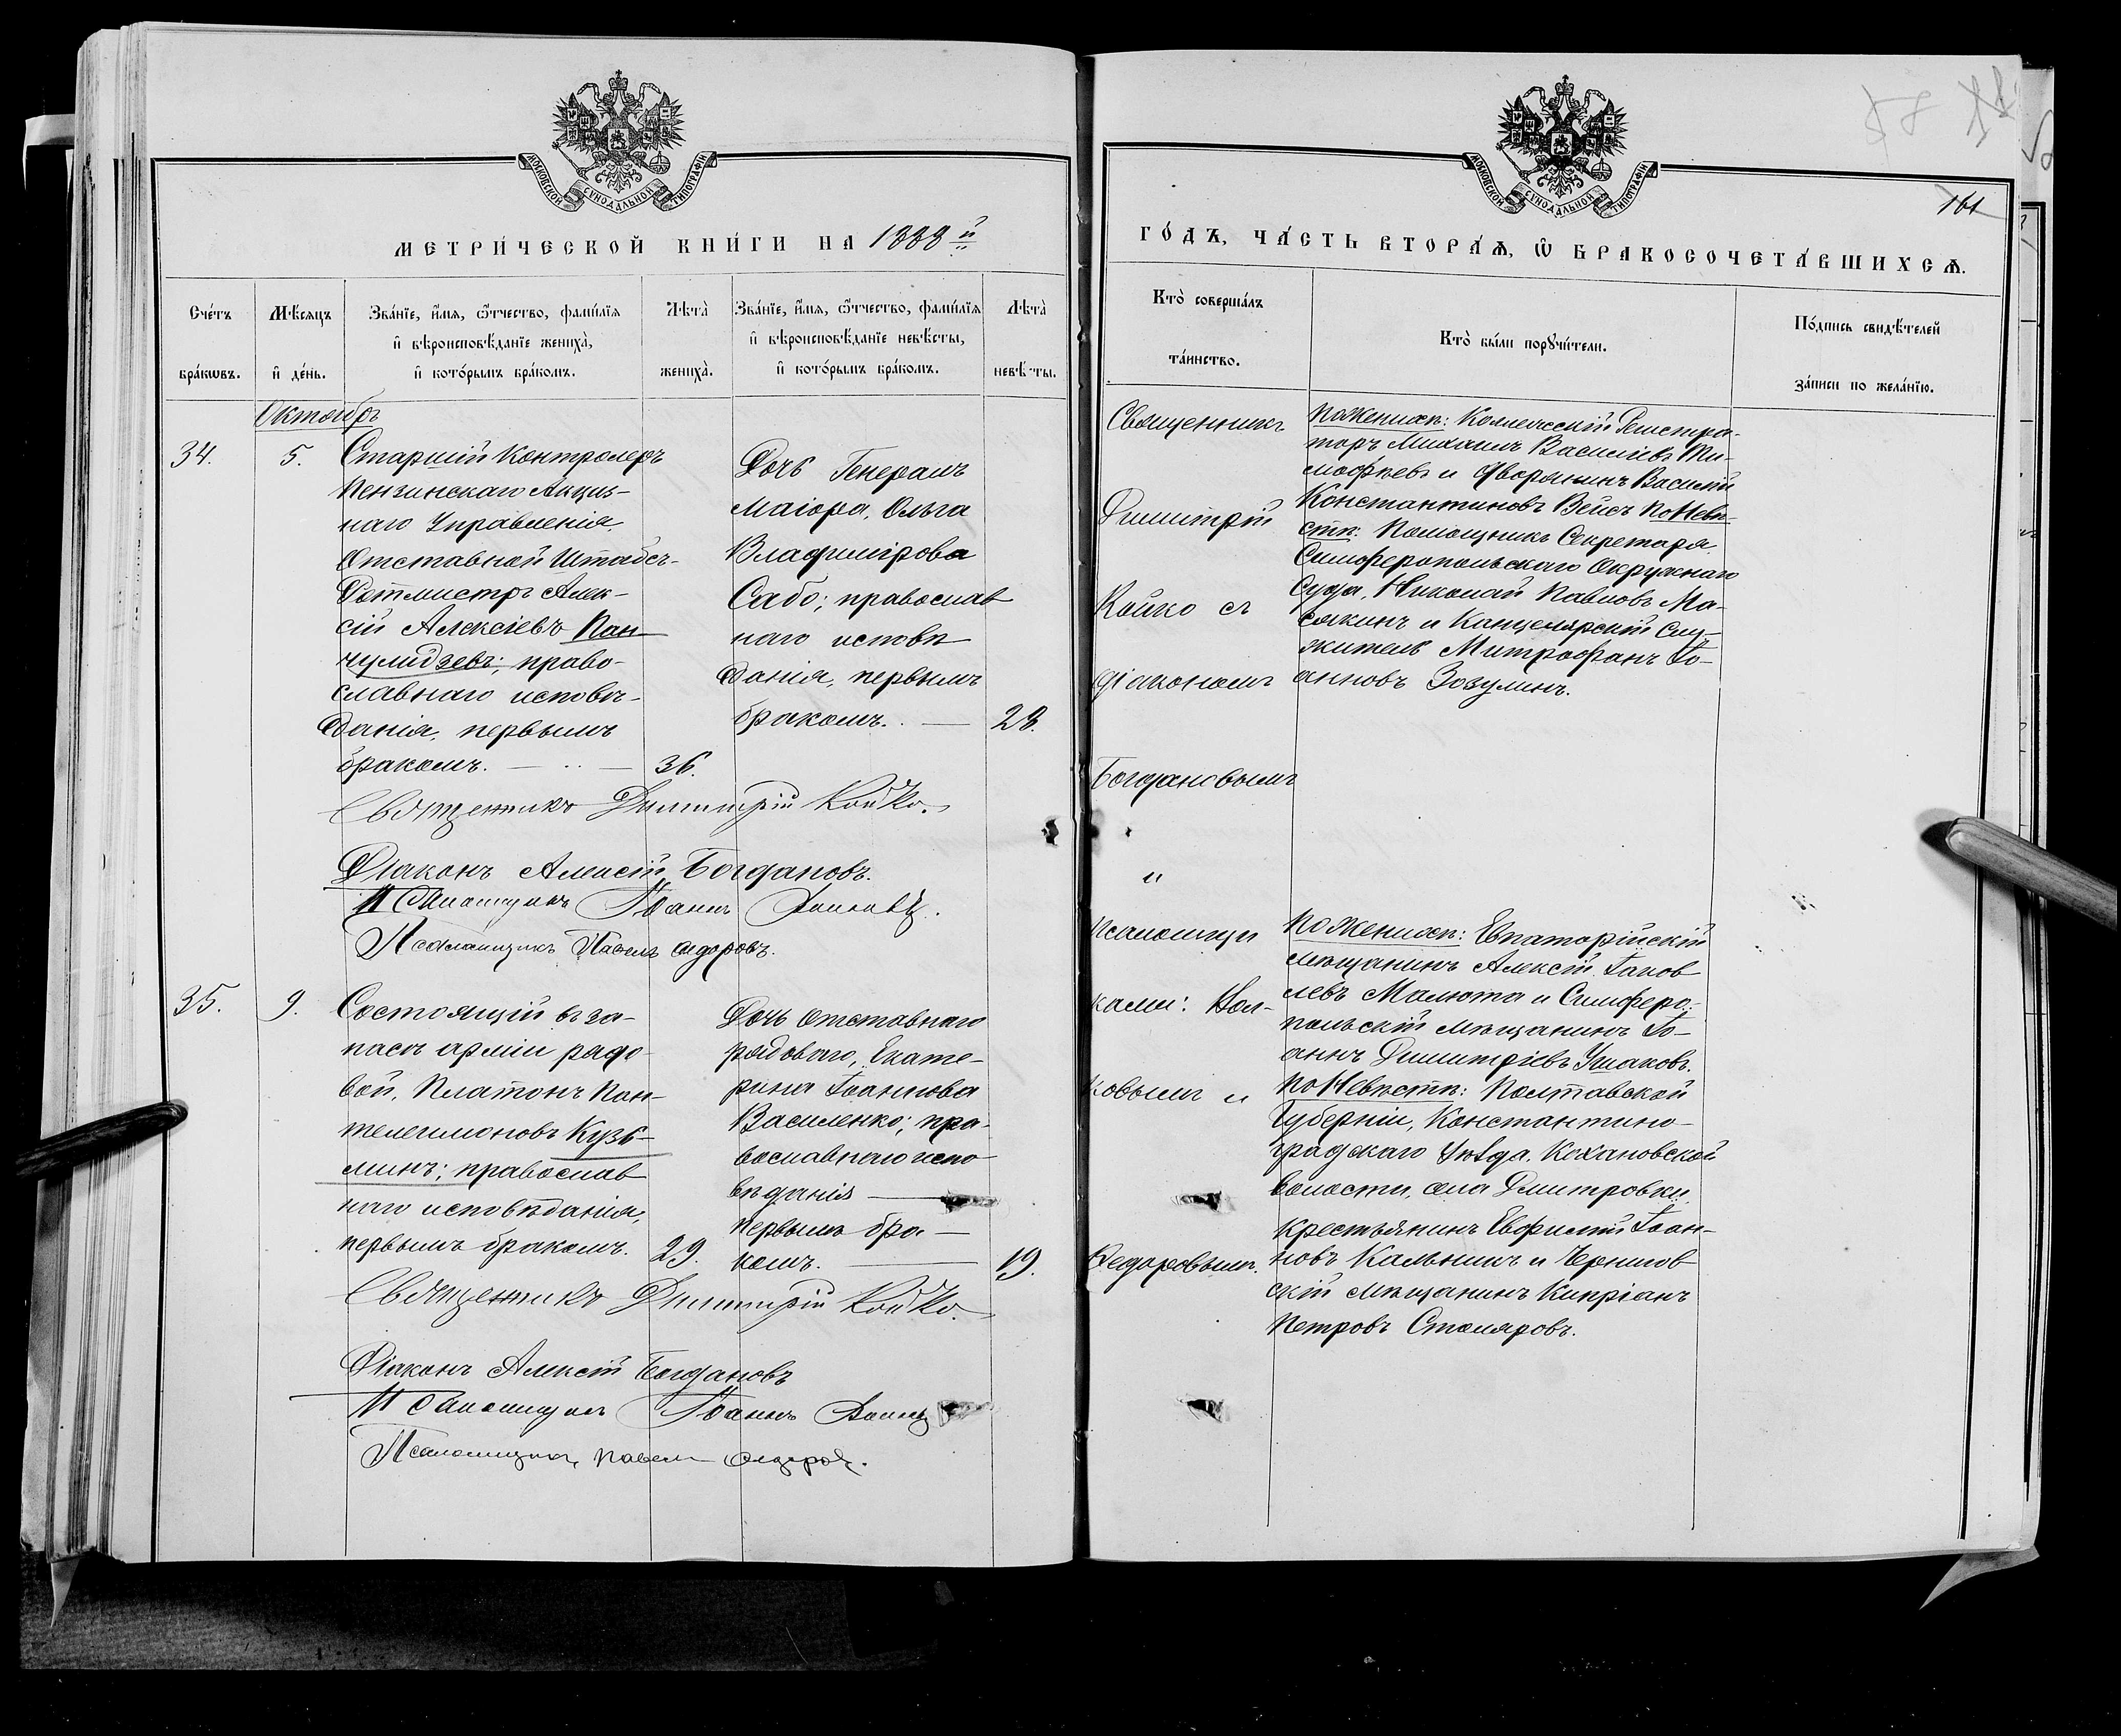 МОСКОВСКОЙ СѴНОДАЛЬНОЙ ТИПОГРАФІИ
МЕТРИ́ЧЕСКОЙ КНИ́ГИ НА 1888 й
Сче́тъ бра́кωвъ.
Мѣ́сяцъ и҆ де́нь.
Зва́нїе, и҆́мя, ѻ҆́тчество, фами́лїя
и҆ вѣроисповѣ́данїе жениха̀,
и҆ кото́рымъ бра́комъ.
Лѣта̀ жениха̀.
Зва́нїе, и҆́мя, ѻ҆́тчество, фами́лїя
и҆ вѣроисповѣ́данїе невѣ́сты,
и҆ кото́рымъ бра́комъ.
Лѣта̀ невѣ́сты.
Октябрь
34.
5.
Старшій Контролеръ
Пензинскаго Акциз-
наго Управленія
Отставной Штабсъ-
Ротмистръ Алек-
сій Алексіевъ Пан-
чулидзевъ; право-
славнаго исповѣ-
данія, первымъ
бракомъ. —
36.
Дочь Генералъ
Маіора, Ольга
Владимірова
Сабо; православ
наго исповѣ
данія, первымъ
бракомъ. —
28.
Священникъ Димитрій Койко.
Діаконъ Алексій Богдановъ.
Псаломщикъ Іоаннъ
Псаломщикъ Павелъ
35.
9.
Состоящій въ за-
пасѣ арміи рядо-
вой, Платонъ Пан-
телеимоновъ Кузь-
минъ; православ
наго исповѣданія,
первымъ бракомъ.
29.
Дочь отставнаго
рядоваго, Екате-
рина Іоаннова
Василенко; пра-
вославнаго испо-
вѣданія —
первымъ бра-
комъ. —
19.
Священникъ Димитрій Койко.
Діаконъ Алексій Богдановъ
Псаломщикъ Іоаннъ
Псаломщикъ Павелъ
МОСКОВСКОЙ СѴНОДАЛЬНОЙ ТИПОГРАФІИ
161
ГО́ДЪ, ЧА́СТЬ ВТОРА́Ѧ, Ѽ БРАКОСОЧЕТА́ВШИХСѦ.
Кто̀ соверша́лъ
та́инство.
Кто̀ бы́ли порꙋчи́тели.
По́дпись свидѣ́телей
за́писи по жела́нїю.
Священникъ
Димитрій
Койко съ
діакономъ
Богдановымъ
и
псаломщи
ками:
ковымъ и
Ѳедоровымъ.
По Женихѣ: Коллежскій Регистра-
торъ Михаилъ Василіевъ Ти-
моѳѣевъ и Дворянинъ Василій
Константиновъ Вейсъ По Невѣ-
стѣ: Помощникъ Секретаря
Симферопольскаго Окружнаго
Суда, Николай Павловъ Ма-
сякинъ и Канцелярскій Слу-
житель Митрофанъ Іо-
анновъ Зозулинъ.
По Женихѣ: Евпаторійскій
мѣщанинъ Алексій Іаков
левъ Малюта и Симферо-
польскій мѣщанинъ Іо-
аннъ Димитріевъ Ушаковъ.
По Невѣстѣ: Полтавской
Губерніи, Константино-
градскаго Уѣзда, Кохановской
волости, села Дмитровки
крестьянинъ Евфимій Іоан-
новъ Кальникъ и Чернигов
скій мѣщанинъ Кипріанъ
Петровъ Столяровъ.